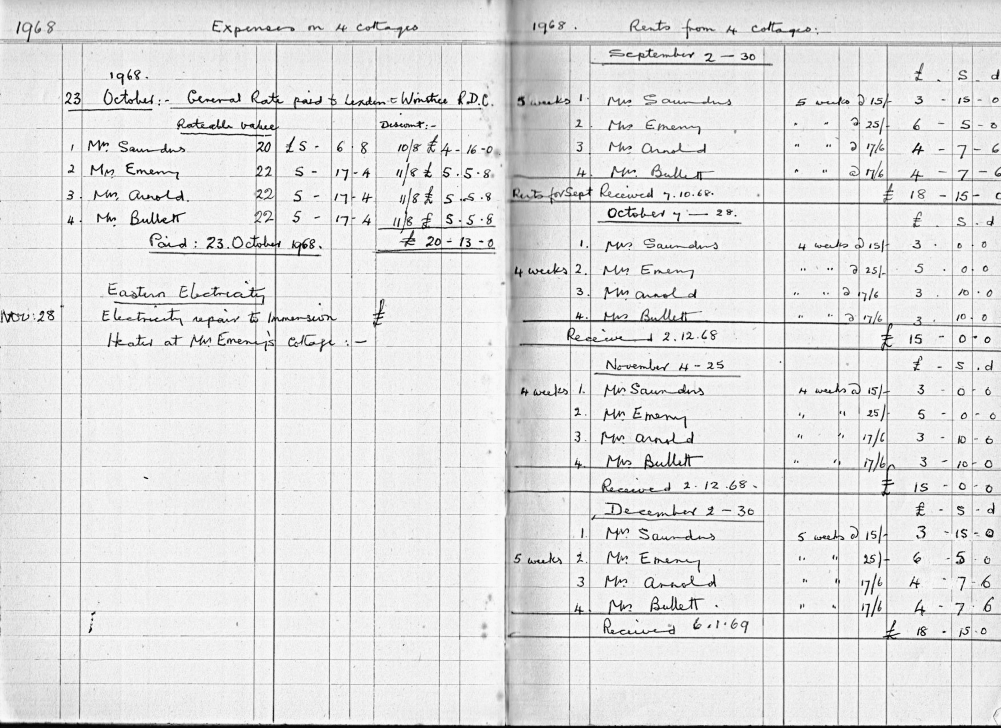 1968 Expenses on 4 cottages
1968.
23 October:- General Rate paid to Lexden & Winstree R.D.C.
Rateable value Discount:-
1 Mrs Saunders 20 £5 - 6 - 8 10/8 £ 4 - 16 - 0
2 Mrs Emeny 22 5 - 17 - 4 11/8 £ 5 . 5 . 8
3. Mrs. Arnold. 22 5 - 17 - 4 11/8 £ 5 . 5 . 8
4. Mrs Bullett 22 5 - 17 - 4 11/8 £ 5 . 5 . 8
Paid: 23. October 1968. £ 20 - 13 - 0
Eastern Electricity
Nov: 28 Electricity repair to Immersion £
Heater at Mrs Emeny's Cottage :-
1968. Rents from 4 cottages:-
September 2 - 30
£ . S . d
5 weeks 1. Mrs Saunders 5 weeks @ 15/- 3 - 15 - 0
2. Mrs Emeny " " @ 25/- 6 - 5 - 0
3 Mrs Arnold " " @ 17/6 4 - 7 - 6
4. Mrs Bullett " " @ 17/6 4 - 7 - 6
Rents for Sept Received 7.10.68. £ 18 - 15 - 0
October 7 - 28. £ . S . d
1. Mrs Saunders 4 weeks @ 15/- 3 . 0 . 0
4 weeks 2. Mrs Emeny " " @ 25/- 5 . 0 . 0
3. Mrs Arnold " " @ 17/6 3 . 10 . 0
4. Mrs Bullett " " @ 17/6 3 . 10 . 0
Received 2.12.68 £ 15 - 0 - 0
November 4 - 25 £ - S . d
4 weeks 1. Mrs Saunders 4 weeks @ 15/- 3 - 0 0
2. Mrs Emeny " " 25/- 5 - 0 - 0
3. Mrs Arnold " " 17/6 3 - 10 - 0
4. Mrs Bullett " " 17/6 3 - 10 - 0
Received 2.12.68. £ 15 - 0 - 0
December 2 - 30 £ - S - d
1. Mrs Saunders 5 weeks @ 15/- 3 - 15 - 0
5 weeks 2. Mrs Emeny " " 25/- 6 - 5 . 0
3 Mrs Arnold " " 17/6 4 - 7 - 6
4. Mrs Bullett . " " 17/6 4 - 7 - 6
Received 6.1.69 £ 18 - 15 . 0